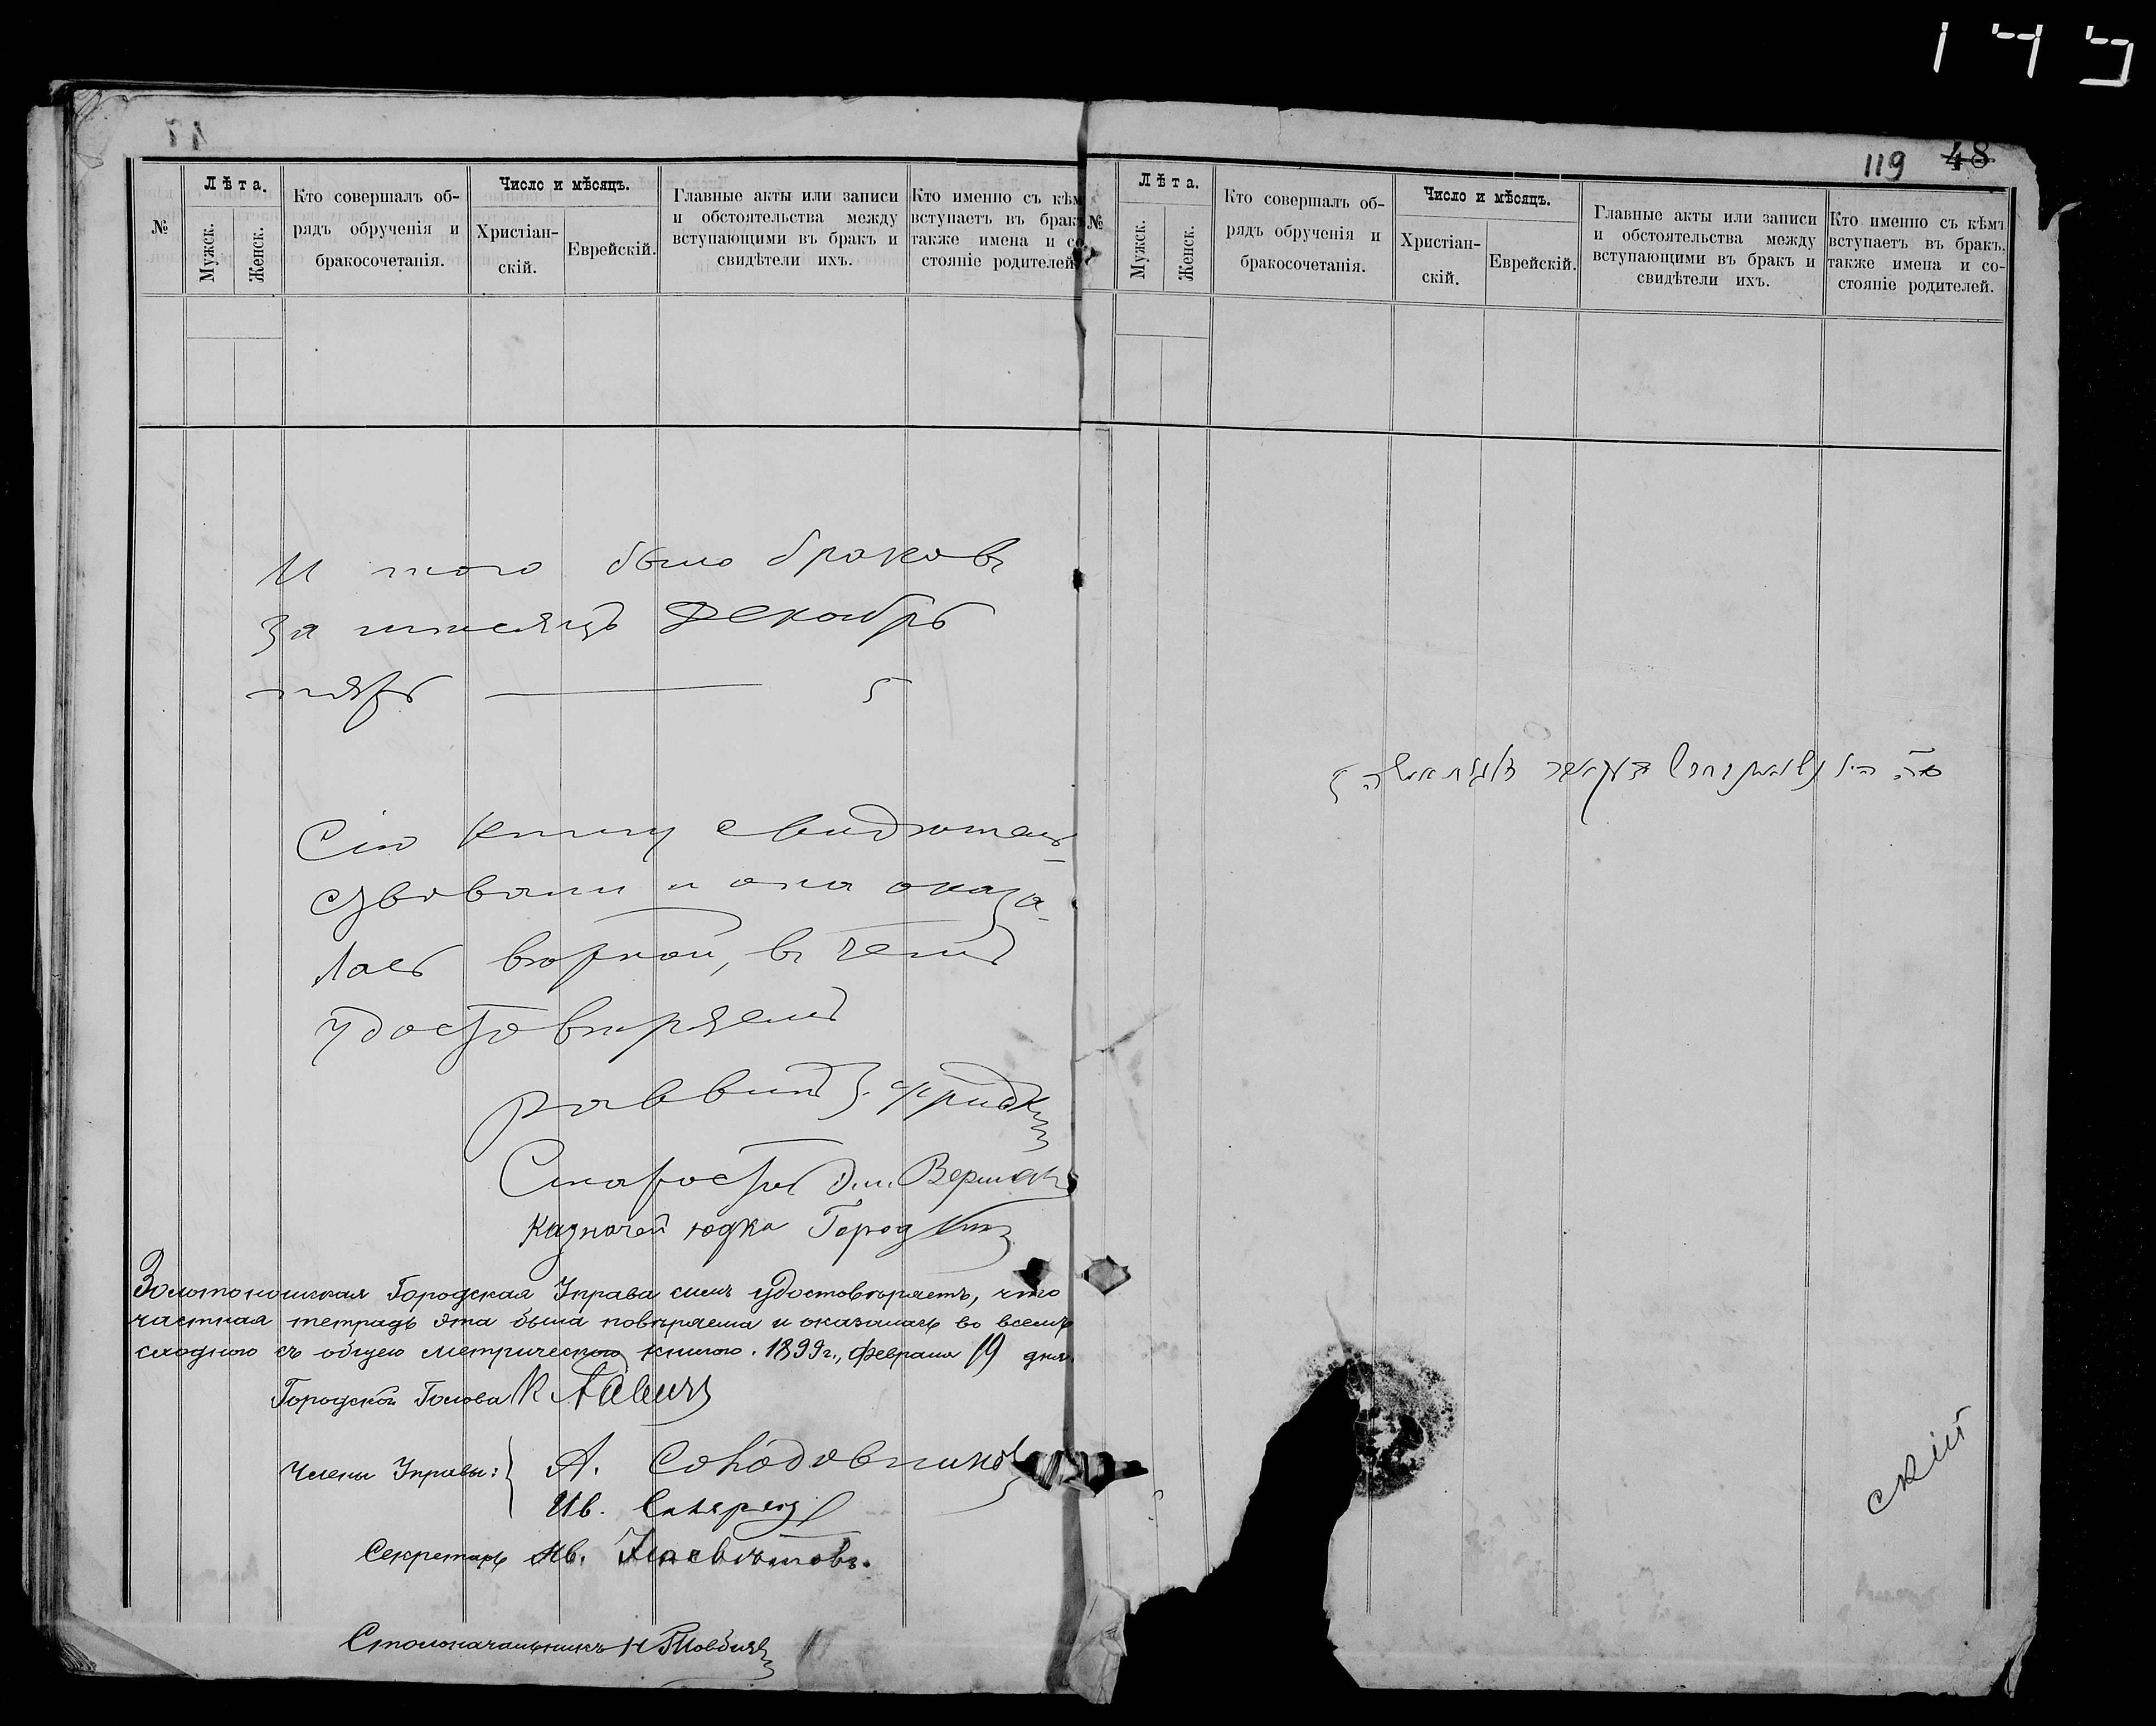 119 48
№
Лѣта.
Мужск.
Женск.
Кто совершалъ об-
рядъ обрученія и
бракосочетанія.
Число и мѣсяцъ.
Христіан-
скій.
Еврейскій.
Главные акты или записи
и обстоятельства между
вступающими въ бракъ и
свидѣтели ихъ.
Кто именно съ кѣм
вступаетъ въ брак
также имена и со
стояніе родителей
И того было браковъ
за мѣсяцъ Декабрь
пять — 5
Сію книгу свидѣтель-
ствовали и она оказа-
лась вѣрной, въ чемъ
удостовѣряемъ
Раввинъ З. Фридкинъ
Староста
Казначей Юдка Городкинъ
Золотоношская Городская Управа симъ удостовѣряетъ, что
частная тетрадь эта была повѣряема и оказалась во всемъ
сходною съ общею метрическою книгою. 1899 г., февраля 19 дня.
Городской Голова К
Члены Управы: А. Солодовниковъ
Ив.
Секретарь Ив.
Столоначальникъ Н
№
Лѣта.
Мужск.
Женск.
Кто совершалъ об-
рядъ обрученія и
бракосочетанія.
Число и мѣсяцъ.
Христіан-
скій.
Еврейскій.
Главные акты или записи
и обстоятельства между
вступающими въ бракъ и
свидѣтели ихъ.
Кто именно съ кѣмъ
вступаетъ въ бракъ.
также имена и со-
стояніе родителей.
скій